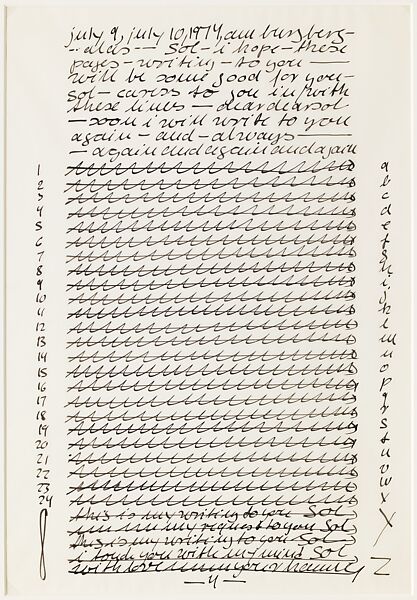 july 9, july 10, 1974, am burgberg-
-alas-- Sol-i hope-these
pages-writing-to you—
will be some good for you-
Sol-caress to you in/with
these lines-dear dear sol-
-soon i will write to you
again-and-always—
-again and again and again
1 a
2 b
3 c
4 d
5 e
6 f
7 g
8 h
9 i
10 j
11 k
12 l
13 m
14 n
15 o
16 p
17 q
18 r
19 s
20 t
21 u
22 v
23 w
24 x
this is my writing to you Sol
my request to you Sol y
this is my writing to you Sol
i touch you with my mind Sol
with love your hanne z
-4-